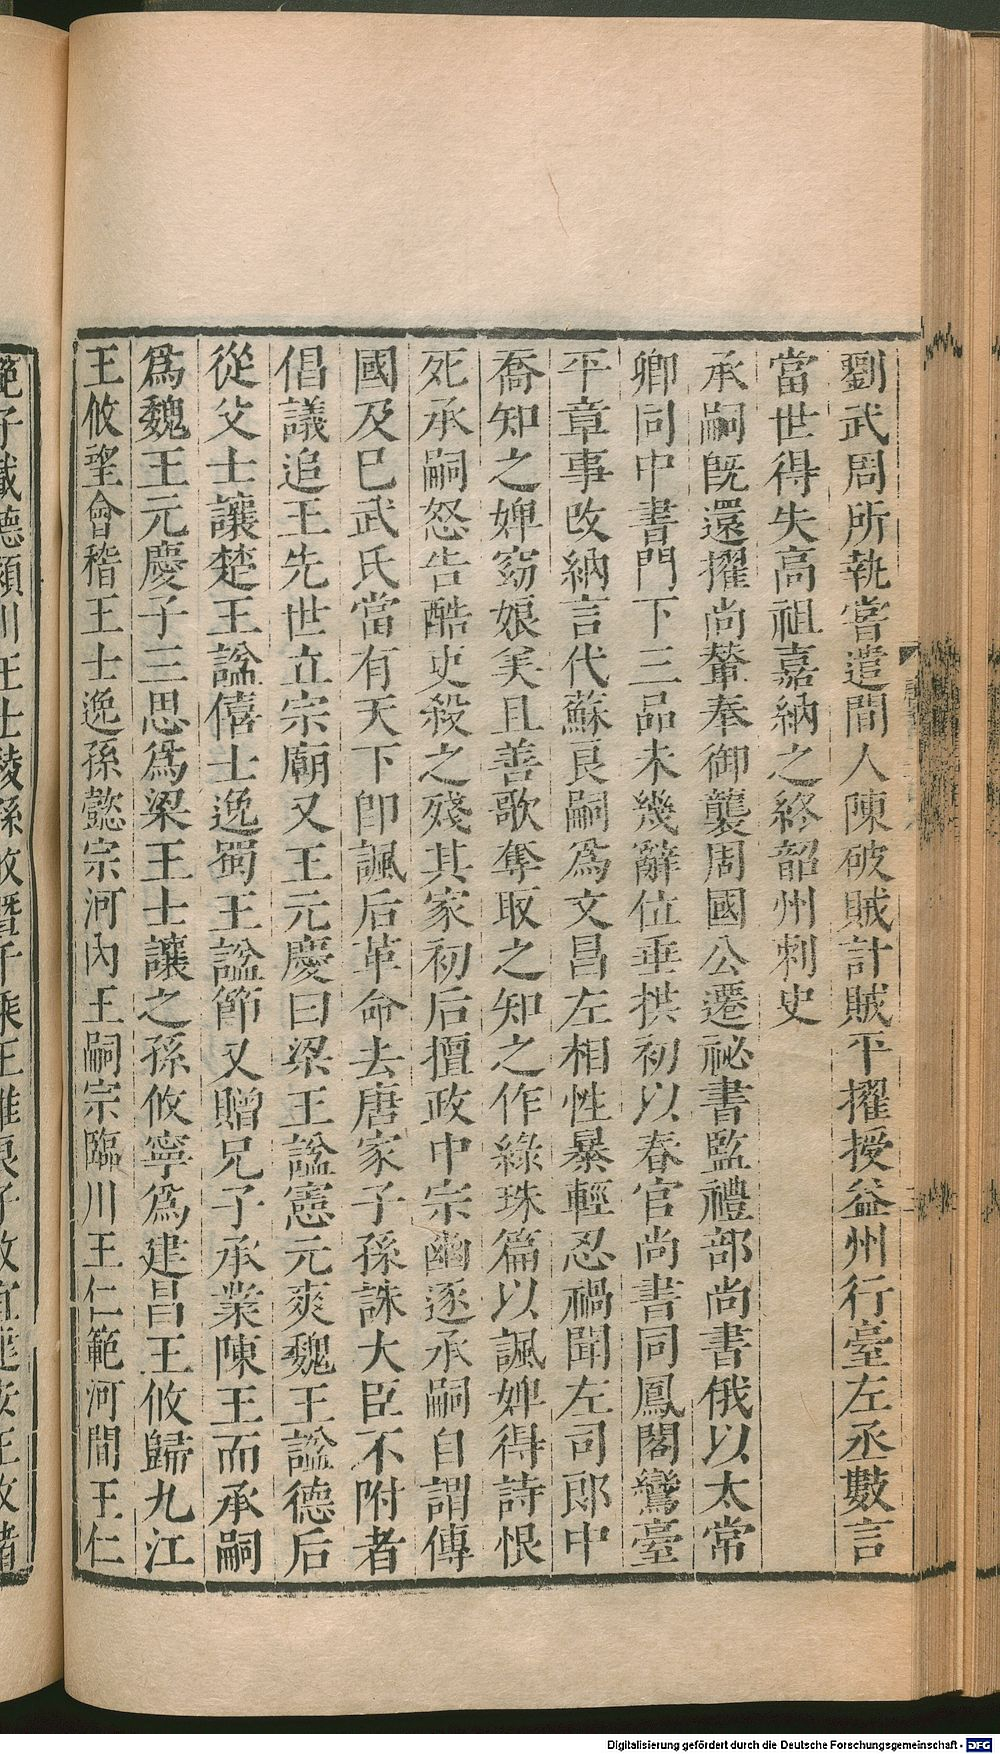 劉武周所執嘗遣間人陳破賊計賊平擢授益州行臺左丞數言
當世得失高祖嘉納之終韶州刺史
承嗣既還擢尚輦奉御襲周國公遷祕書監禮部尚書俄以太常
卿同中書門下三品未幾辭位垂拱初以春官尚書同鳳閣鸞臺
平章事改納言代蘇良嗣爲文昌左相性暴輕忍禍聞左司郎中
喬知之婢窈娘美且善歌奪取之知之作綠珠篇以諷婢得詩恨
死承嗣怒告酷吏殺之殘其家初后擅政中宗幽逐承嗣自謂傳
國及已武氏當有天下卽諷后革命去唐家子孫誅大臣不附者
倡議追王先世立宗廟又王元慶曰梁王諡憲元爽魏王諡德后
從父士讓楚王諡僖士逸蜀王諡節又贈兄子承業陳王而承嗣
爲魏王元慶子三思爲梁王士讓之孫攸寧爲建昌王攸歸九江
王攸望會稽王士逸孫懿宗河內王嗣宗臨川王仁範河間王仁
Digitalisierung gefördert durch die Deutsche Forschungsgemeinschaft - DFG